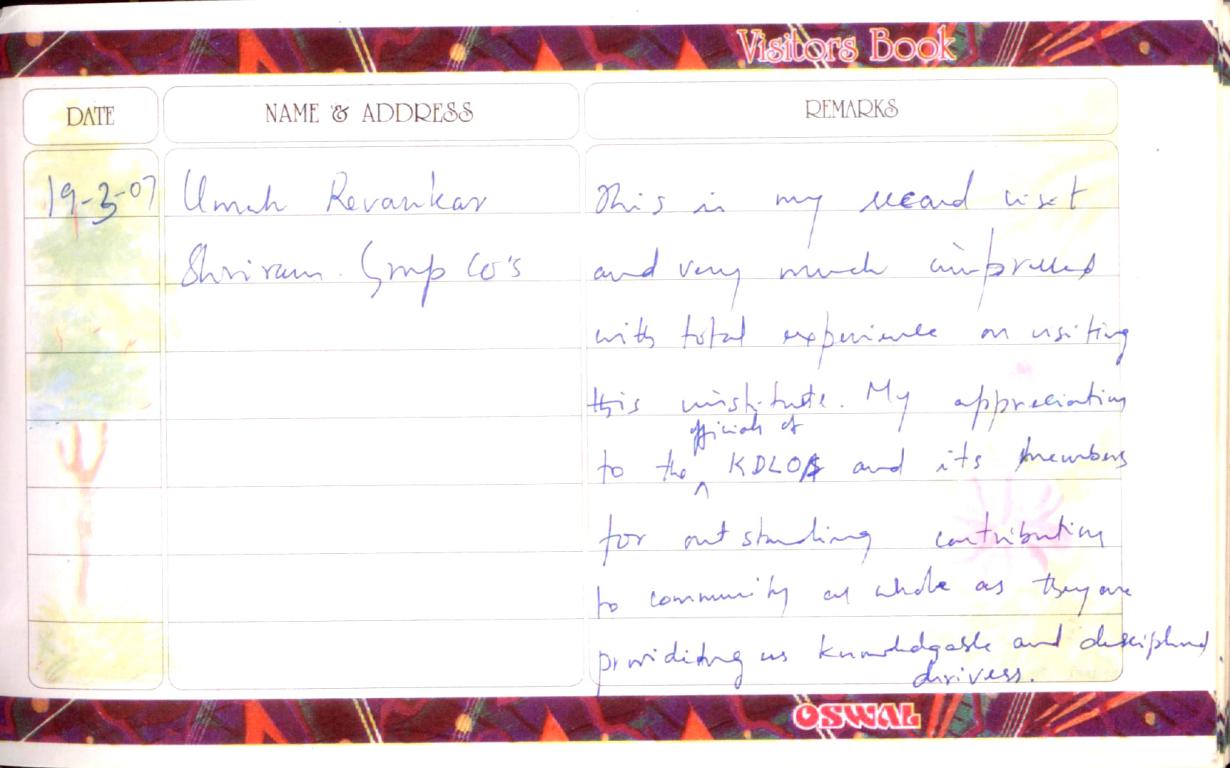 Visitors Book
DATE NAME & ADDRESS REMARKS
19-3-07 Umesh Revankar This is my second visit
Shriram Group Co's and very much impressed
with total experience on visiting
this institute. My appreciation
officials of
to the ^ KDLOA and its members
for outstanding contribution
to community as whole as they are
providing us knowledgable and disciplined
drivers.
OSWAL